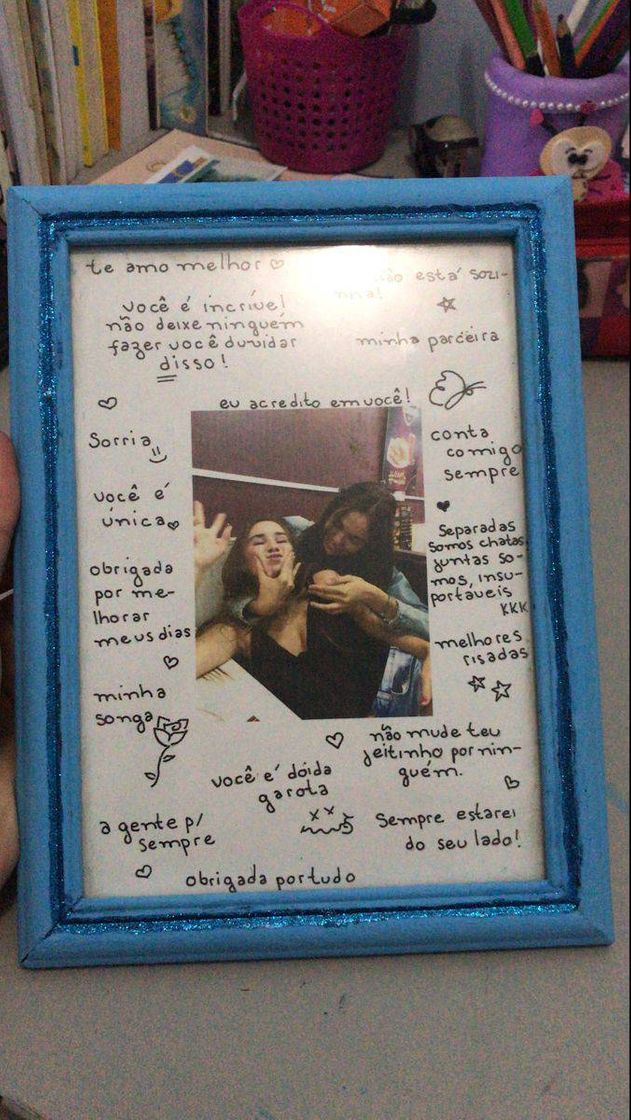 te amo melhor
está sozi-
nha!
você é incrível
não deixe ninguém
fazer você duvidar
disso!
minha parceira
eu acredito em você!
Sorria
conta
comigo
sempre
você é
única
Separadas
somos chatas,
juntas so-
mos, insu-
portáveis
KKK
obrigada
por me-
lhorar
meus dias
melhores
risadas
minha
songa
não mude teu
jeitinho por nin-
guém.
você é dóida
garota
a gente p/
sempre
Sempre estarei
do seu lado!
obrigada por tudo